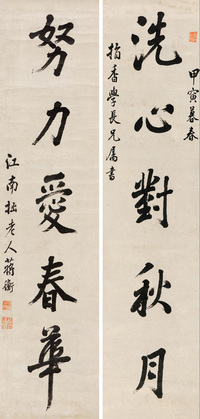 甲寅暮春
洗心對秋月
指香學長兄屬書
努力愛春華
江南拙老人蔣衡